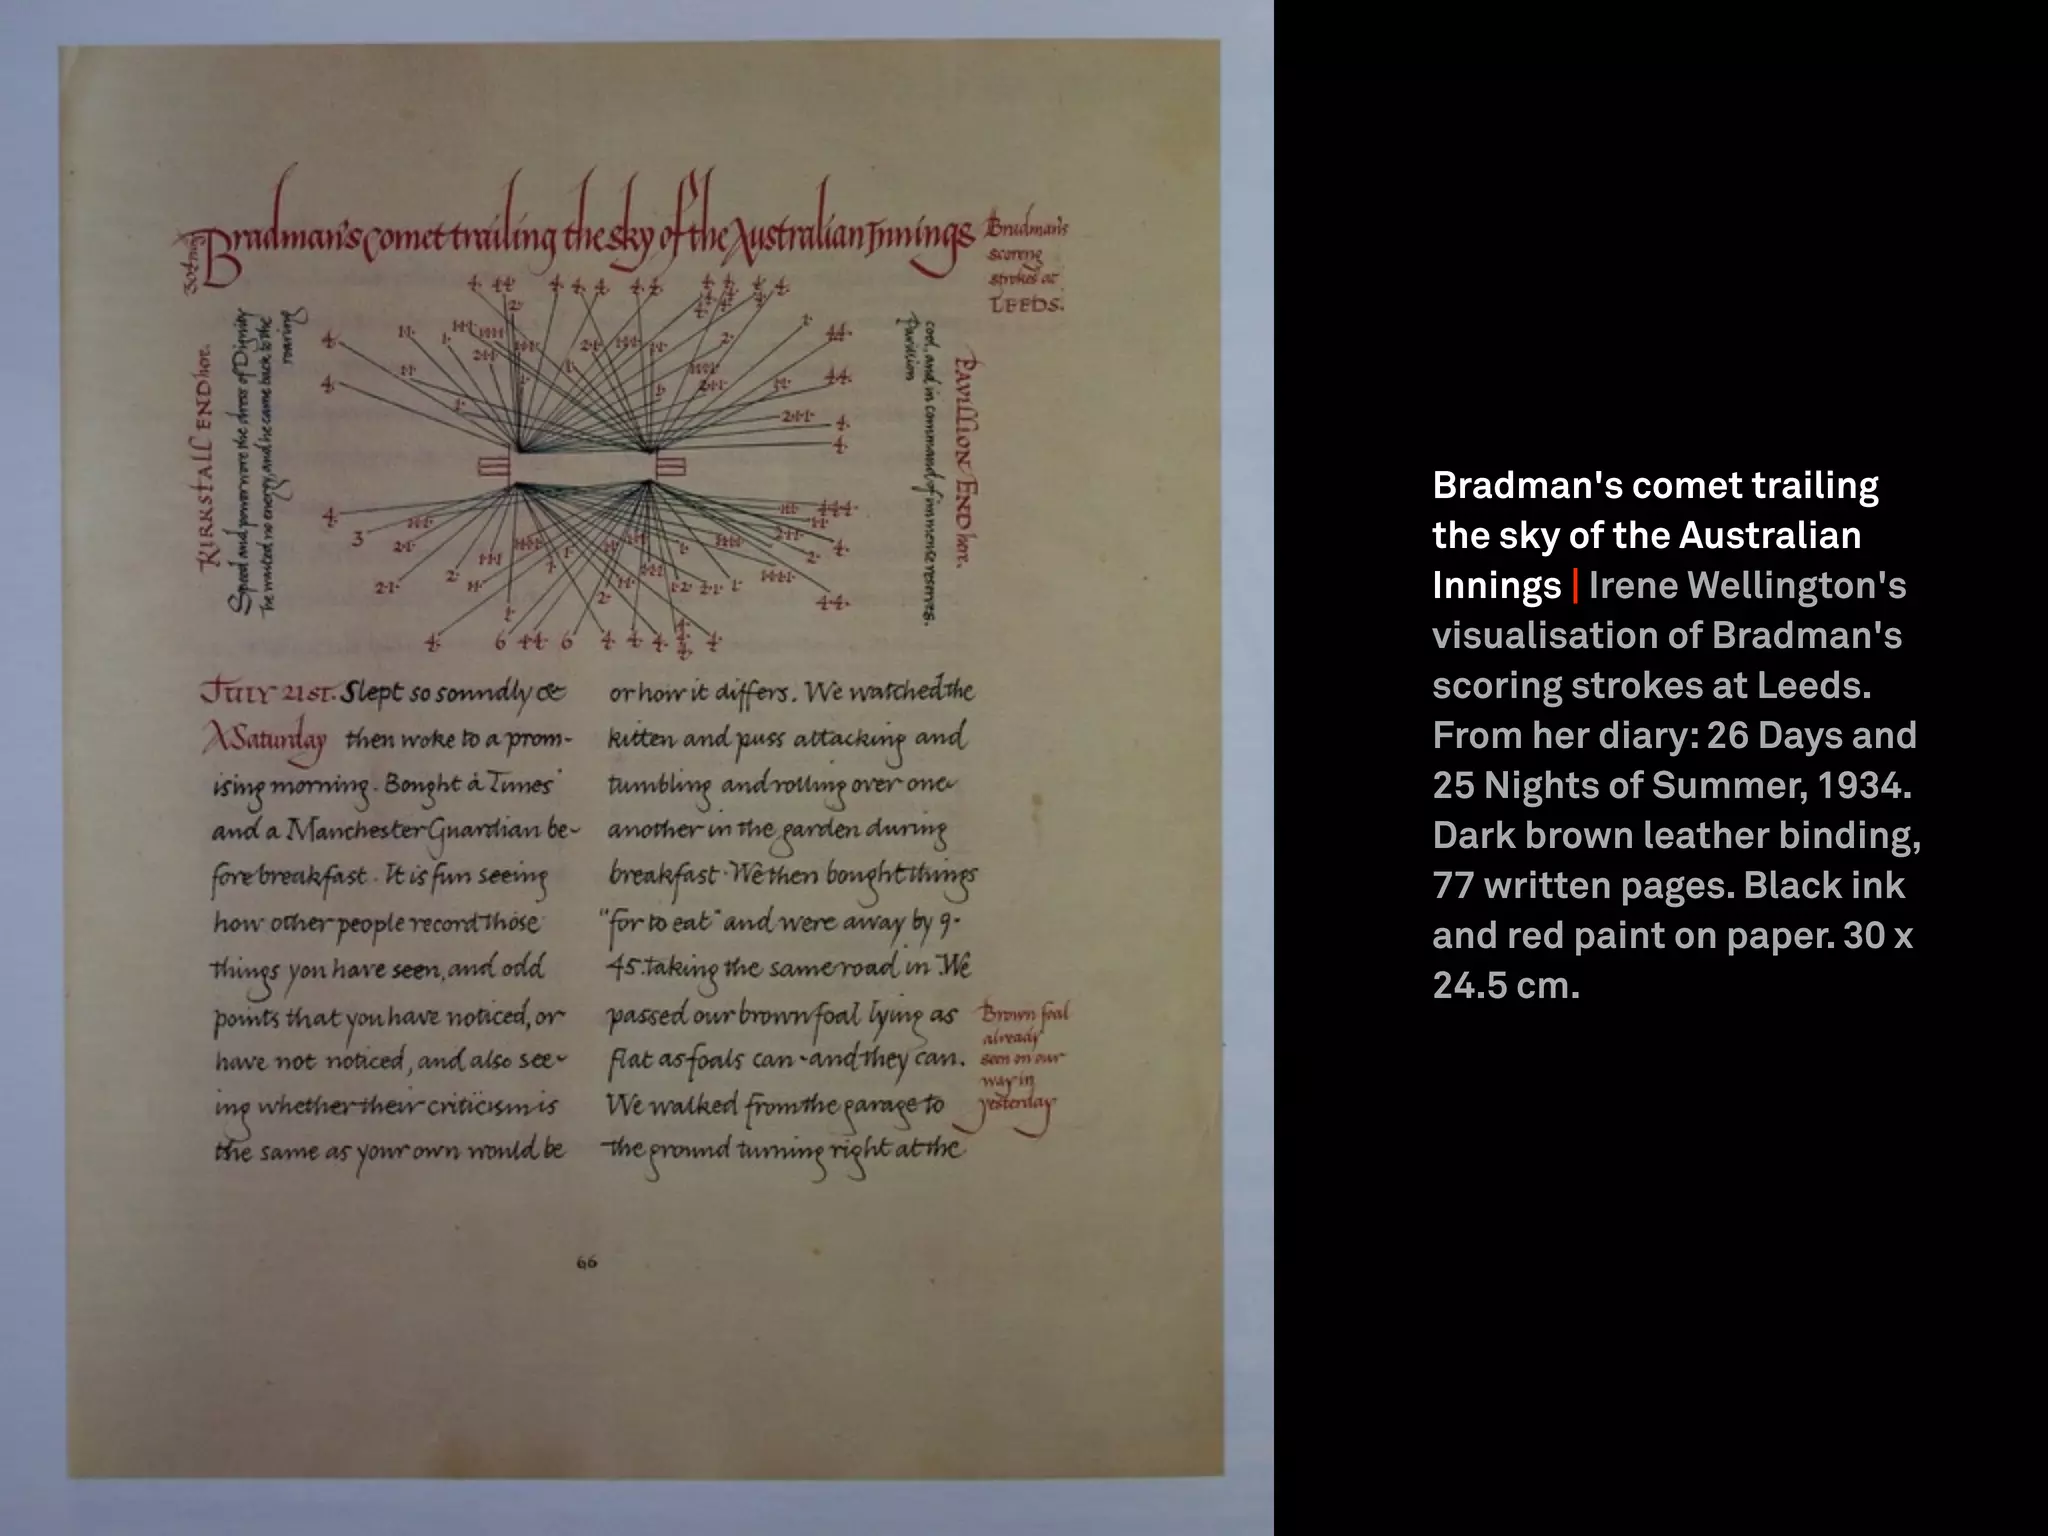 Bradman's comet trailing the sky of the Australian Innings
Bradman's
scoring
strokes at
LEEDS.
KIRKSTALL END here.
Speed and power wore the dress of Dignity
he wasted no energy, and he came back to the
roaring
Pavilion
cool, and in command of immense reserves.
PAVILLION END here.
4. 4.4. 4. 4. 4. 4. 4.
6 4.4. 6 4. 4. 4. 4.
JULY 21ST. Slept so soundly &
A Saturday then woke to a prom-
ising morning. Bought a 'Times'
and a Manchester Guardian be-
fore breakfast. It is fun seeing
how other people record those
things you have seen, and odd
points that you have noticed, or
have not noticed, and also see-
ing whether their criticism is
the same as your own would be
or how it differs. We watched the
kitten and puss attacking and
tumbling and rolling over one
another in the garden during
breakfast. We then bought things
"for to eat" and were away by 9-
45. taking the same road in. We
passed our brown foal lying as
flat as foals can - and they can.
We walked from the garage to
the ground turning right at the
Brown foal
already
seen on our
way in
yesterday
66
Bradman's comet trailing
the sky of the Australian
Innings | Irene Wellington's
visualisation of Bradman's
scoring strokes at Leeds.
From her diary: 26 Days and
25 Nights of Summer, 1934.
Dark brown leather binding,
77 written pages. Black ink
and red paint on paper. 30 x
24.5 cm.